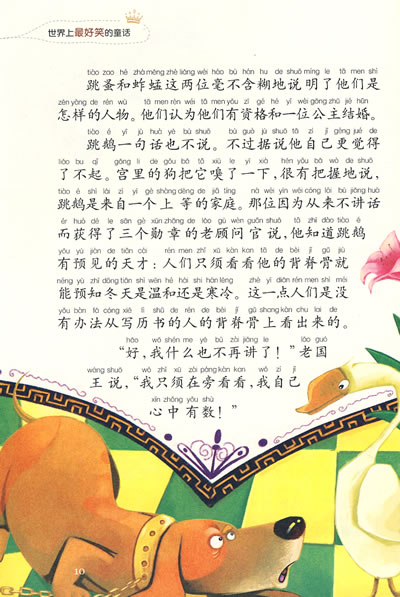 世界上最好笑的童话
tiào zao hé zhà měng zhè liǎng wèi háo bù hán hu de shuō míng le tā men shì
跳蚤和蚱蜢这两位毫不含糊地说明了他们是
zěn yàng de rén wù tā men rèn wéi tā men yǒu zī gé hé yí wèi gōng zhǔ jié hūn
怎样的人物。他们认为他们有资格和一位公主结婚。
tiào é yí jù huà yě bù shuō bú guò jù shuō tā zì jǐ gèng jué de
跳鹅一句话也不说。不过据说他自己更觉得
liǎo bu qǐ gōng lǐ de gǒu bǎ tā xiù le yí xià hěn yǒu bǎ wò de shuō
了不起。宫里的狗把它嗅了一下，很有把握地说，
tiào é shì lái zì yí gè shàng děng de jiā tíng nà wèi yīn wèi cóng lái bù jiǎng huà
跳鹅是来自一个上等的家庭。那位因为从来不讲话
ér huò dé le sān gè xūn zhāng de lǎo gù wèn guān shuō tā zhī dào tiào é
而获得了三个勋章的老顾问官说，他知道跳鹅
yǒu yù jiàn de tiān cái rén men zhǐ xū kàn kan tā de bèi jǐ gǔ jiù
有预见的天才：人们只须看看他的背脊骨就
néng yù zhī dōng tiān shì wēn hé hái shì hán lěng zhè yì diǎn rén men shì méi
能预知冬天是温和还是寒冷。这一点人们是没
yǒu bàn fǎ cóng xiě lì shū de rén de bèi jǐ gǔ shang kàn chu lai de
有办法从写历书的人的背脊骨上看出来的。
hǎo wǒ shén me yě bù zài jiǎng le lǎo guó
“好，我什么也不再讲了！”老国
wáng shuō wǒ zhǐ xū zài páng kàn kan wǒ zì jǐ
王说，“我只须在旁看看，我自己
xīn zhōng yǒu shù
心中有数！”
10